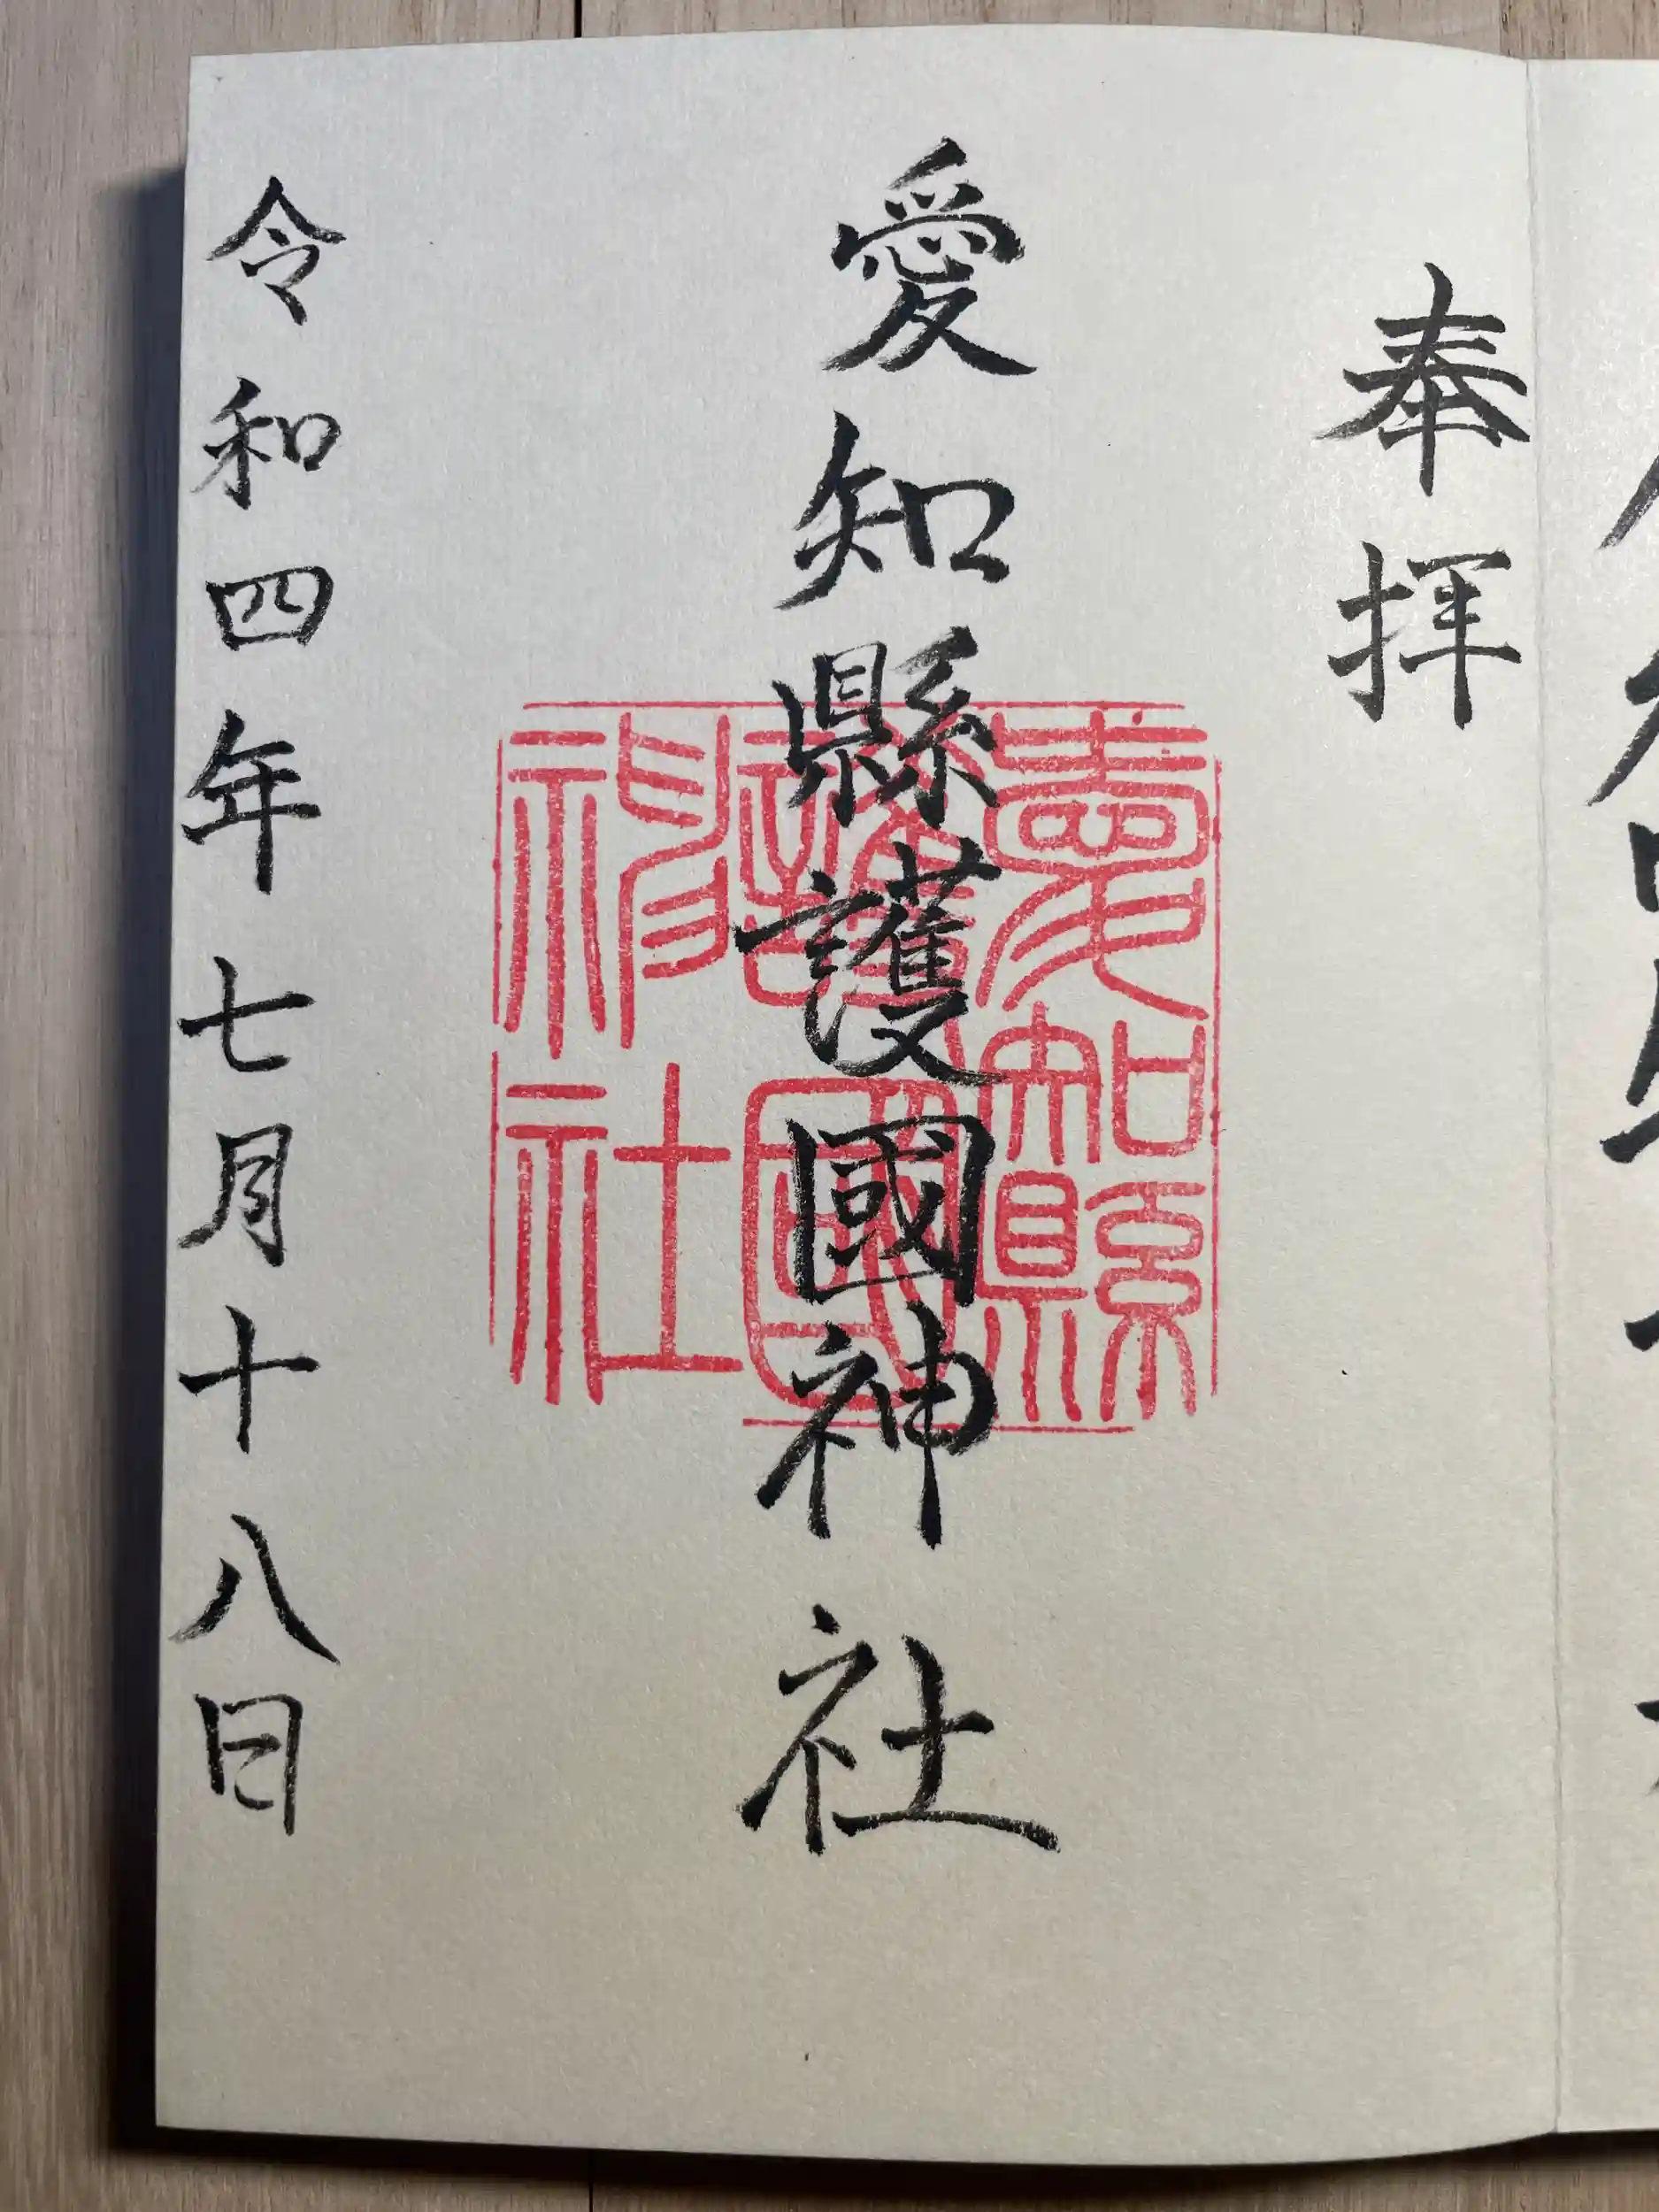 奉拝
愛知縣護國神社
愛知縣
護國
神社
令和四年七月十八日